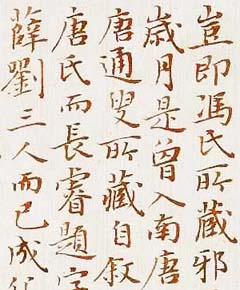 豈即馮氏所藏邪
歲月是曾入南唐
唐通叟所藏自叙
唐氏而長睿題字
薛劉三人而已成